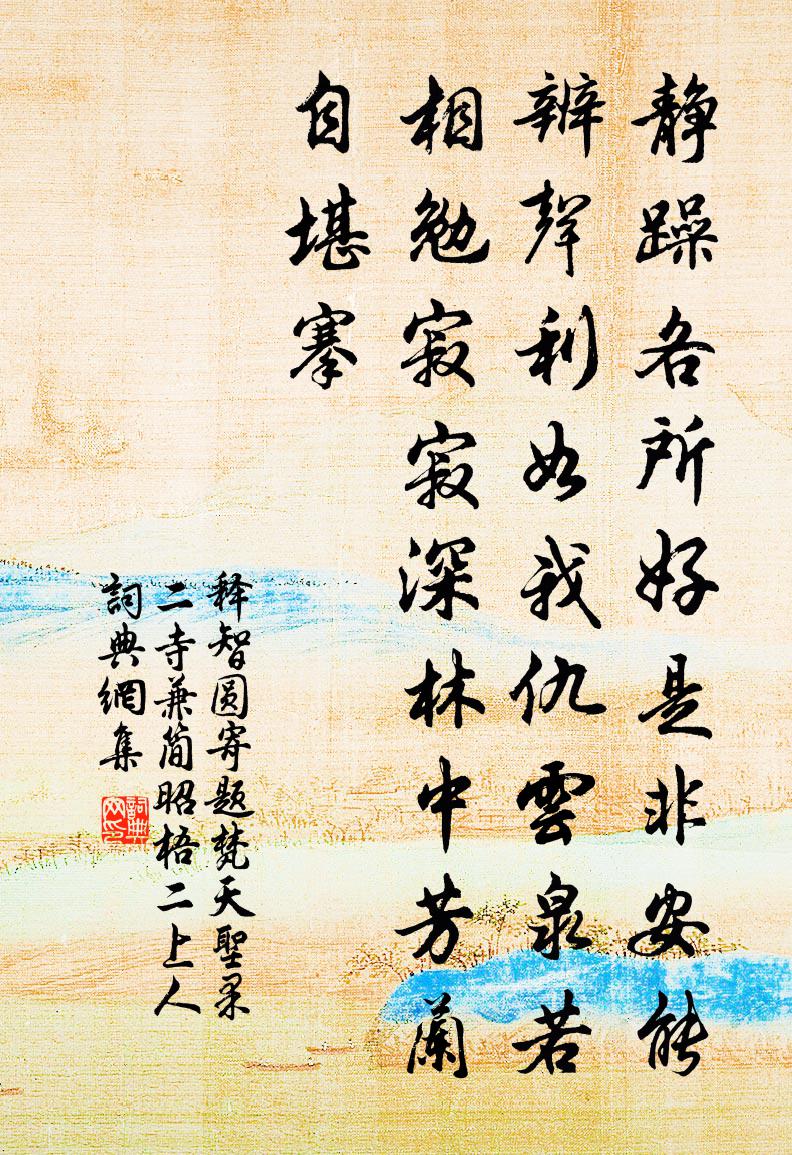 静躁各所好是非安能
辨聲利如我仇雲泉若
相勉寂寂深林中芳蘭
自堪搴
释智圆寄题梵天聖果
二寺兼简昭梧二上人
詞典網集
詞典
网印